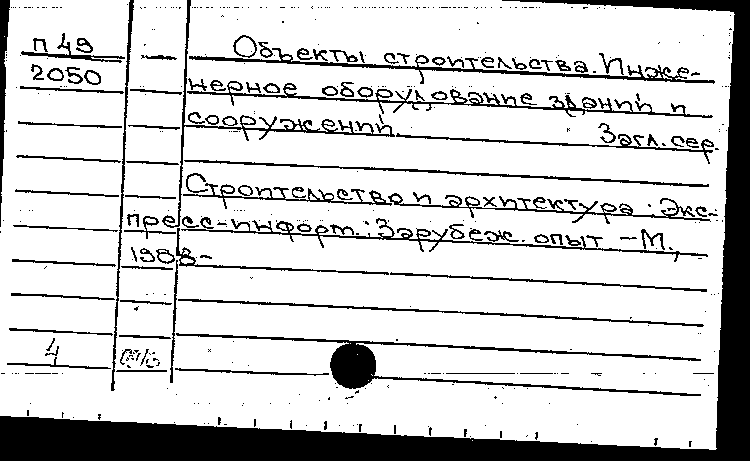 П 49 Объекты строительства. Инже-
2050 нерное оборудование зданий и
сооружений. Загл. сер.
Строительство и архитектура : Экс-
пресс-информ. : Зарубеж. опыт - М.,
1988-
4